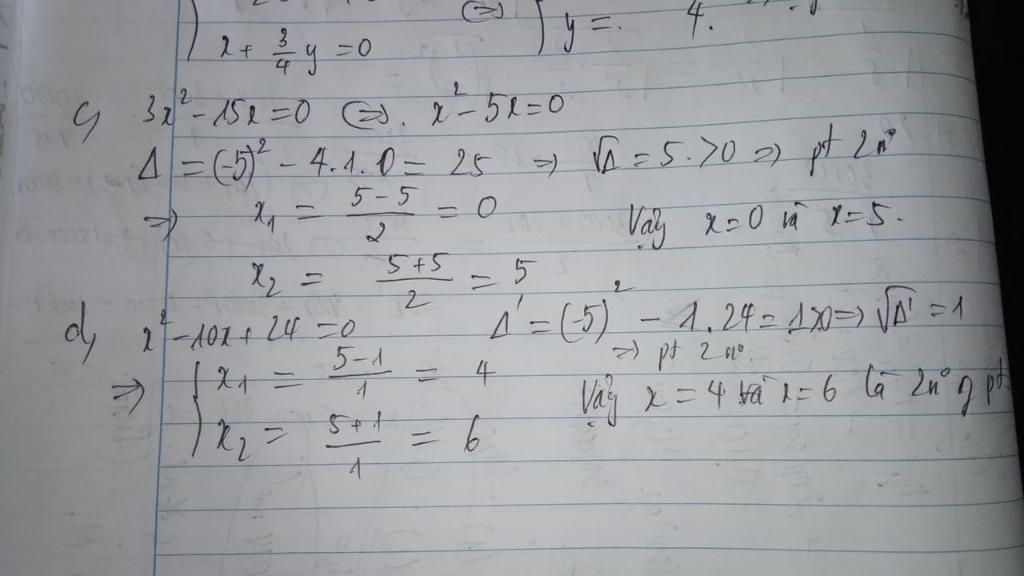 x + 3/4 y = 0 (=) y = . 4.
c, 3x² - 15x = 0 (=). x² - 5x = 0
Δ = (-5)² - 4.1.0 = 25 => √Δ = 5 . >0 => pt 2 nº
=> x₁ = (5-5)/2 = 0 Vậy x = 0 và x = 5.
x₂ = (5+5)/2 = 5
d, x² - 10x + 24 = 0 Δ' = (-5)² - 1.24 = 1>0 => √Δ' = 1
=> pt 2 nº.
=> { x₁ = (5-1)/1 = 4 Vậy x = 4 và x = 6 là 2 nº pt
x₂ = (5+1)/1 = 6